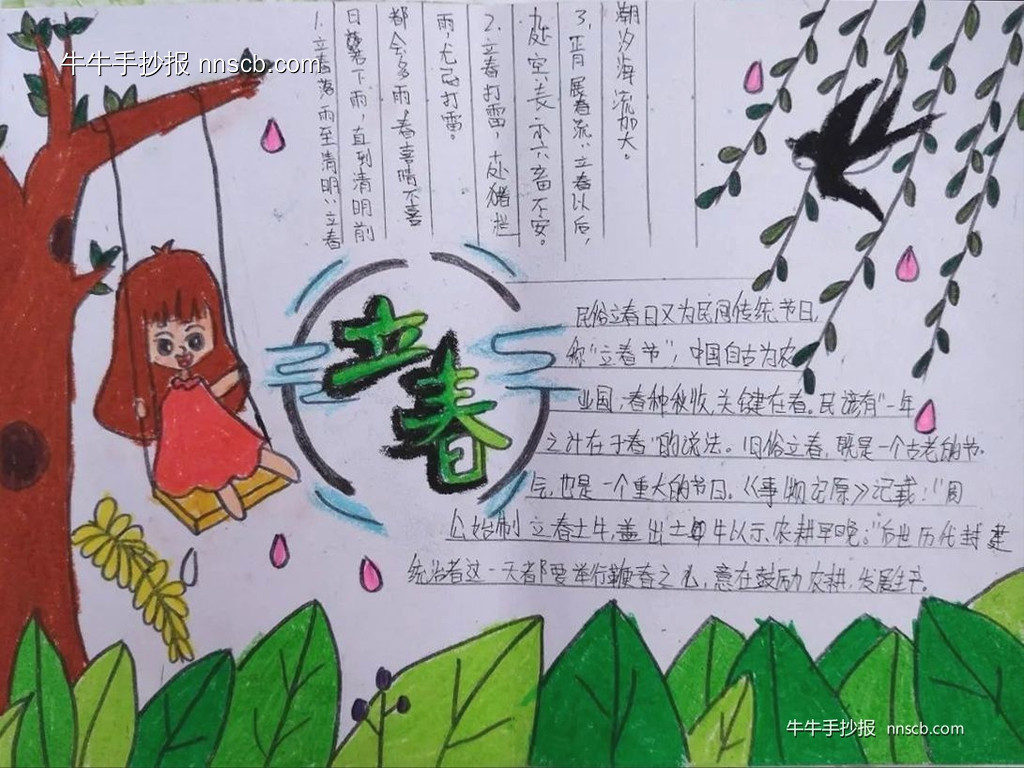 牛牛手抄报 nnscb.com
1. 立春落雨至清明:立春
日下雨,直到清明前
都会多雨,春喜晴不喜
雨,尤忌打雷。
2. 立春打雷,十处猪栏
九处空:表示六畜不安。
3. 正月展春流:立春以后,
潮汐海流加大。
立春
民俗立春日又为民间传统节日,
称“立春节”,中国自古为农
业国,春种秋收,关键在春。民谚有“一年
之计在于春”的说法。旧俗立春,既是一个古老的节
气,也是一个重大的节日。《事物记原》记载:“周
公始制立春土牛,盖出土牛以示农耕早晚。”后世历代封建
统治者这一天都要举行鞭春之礼,意在鼓励农耕,发展生产。
牛牛手抄报 nnscb.com